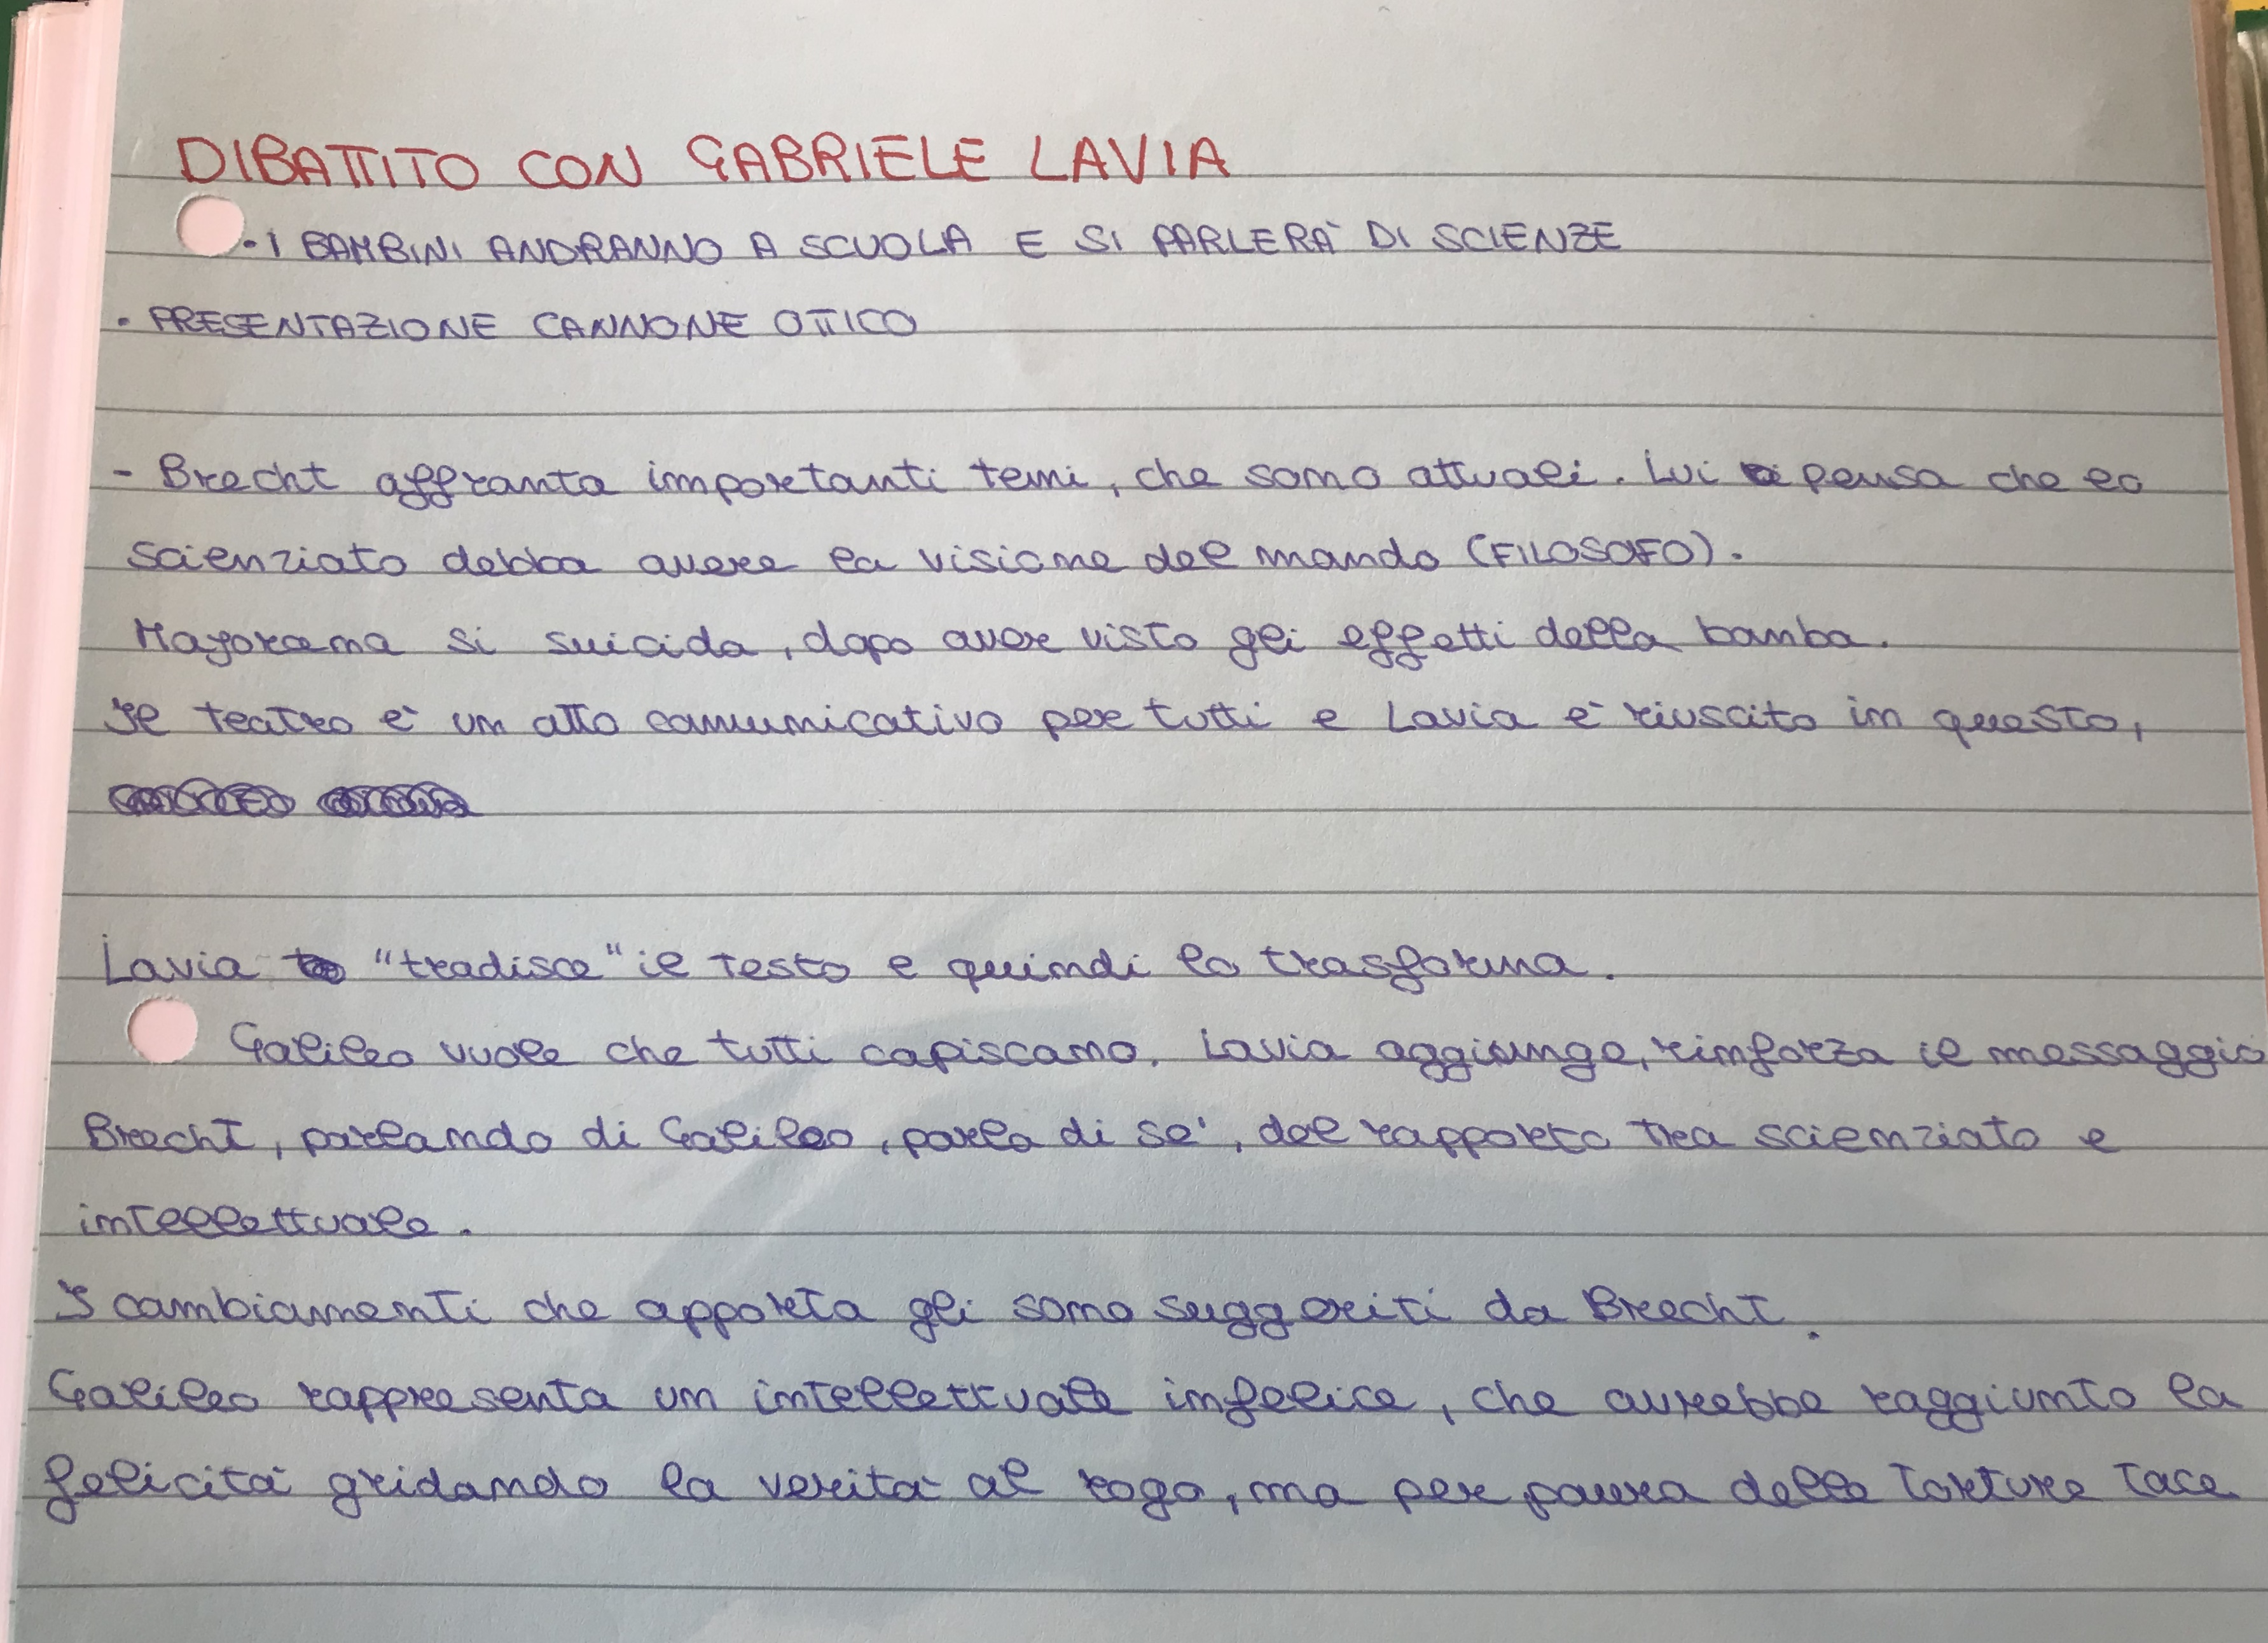 DIBATTITO CON GABRIELE LAVIA
• I BAMBINI ANDRANNO A SCUOLA E SI PARLERÀ DI SCIENZE
• PRESENTAZIONE CANNONE OTTICO
- Brecht affronta importanti temi, che sono attuali. Lui pensa che lo
scienziato debba avere la visione del mondo (FILOSOFO).
Majorana si suicida, dopo aver visto gli effetti della bomba.
Il teatro è un atto comunicativo per tutti e Lavia è riuscito in questo,
Lavia "tradisce" il testo e quindi lo trasforma.
Galileo vuole che tutti capiscano. Lavia aggiunge, rinforza il messaggio
Brecht, parlando di Galileo, parla di se', del rapporto tra scienziato e
intellettuale.
I cambiamenti che apporta gli sono suggeriti da Brecht.
Galileo rappresenta un intellettuale infelice, che avrebbe raggiunto la
felicità gridando la verità al rogo, ma per paura delle torture tace